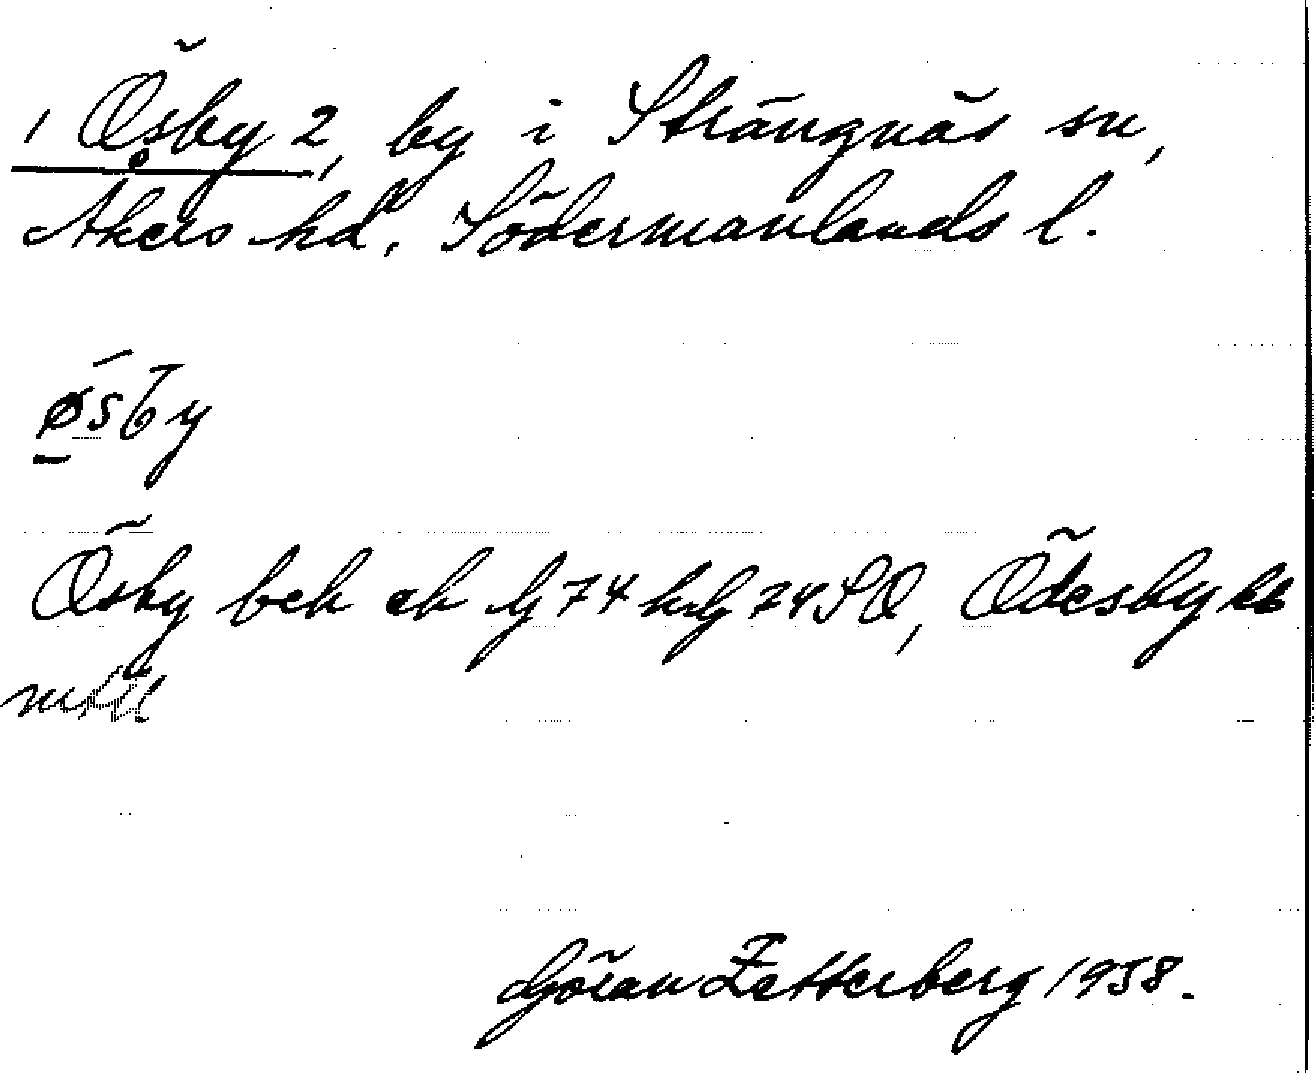 1 Ösby 2, by i Strängnäs sn,
Åkers hd, Södermanlands l.
ø̄sby
Ösby beh ek Gj 74 hÖ 74 SO, Ödesby kb
mtl
Göran Zetterberg 1958.